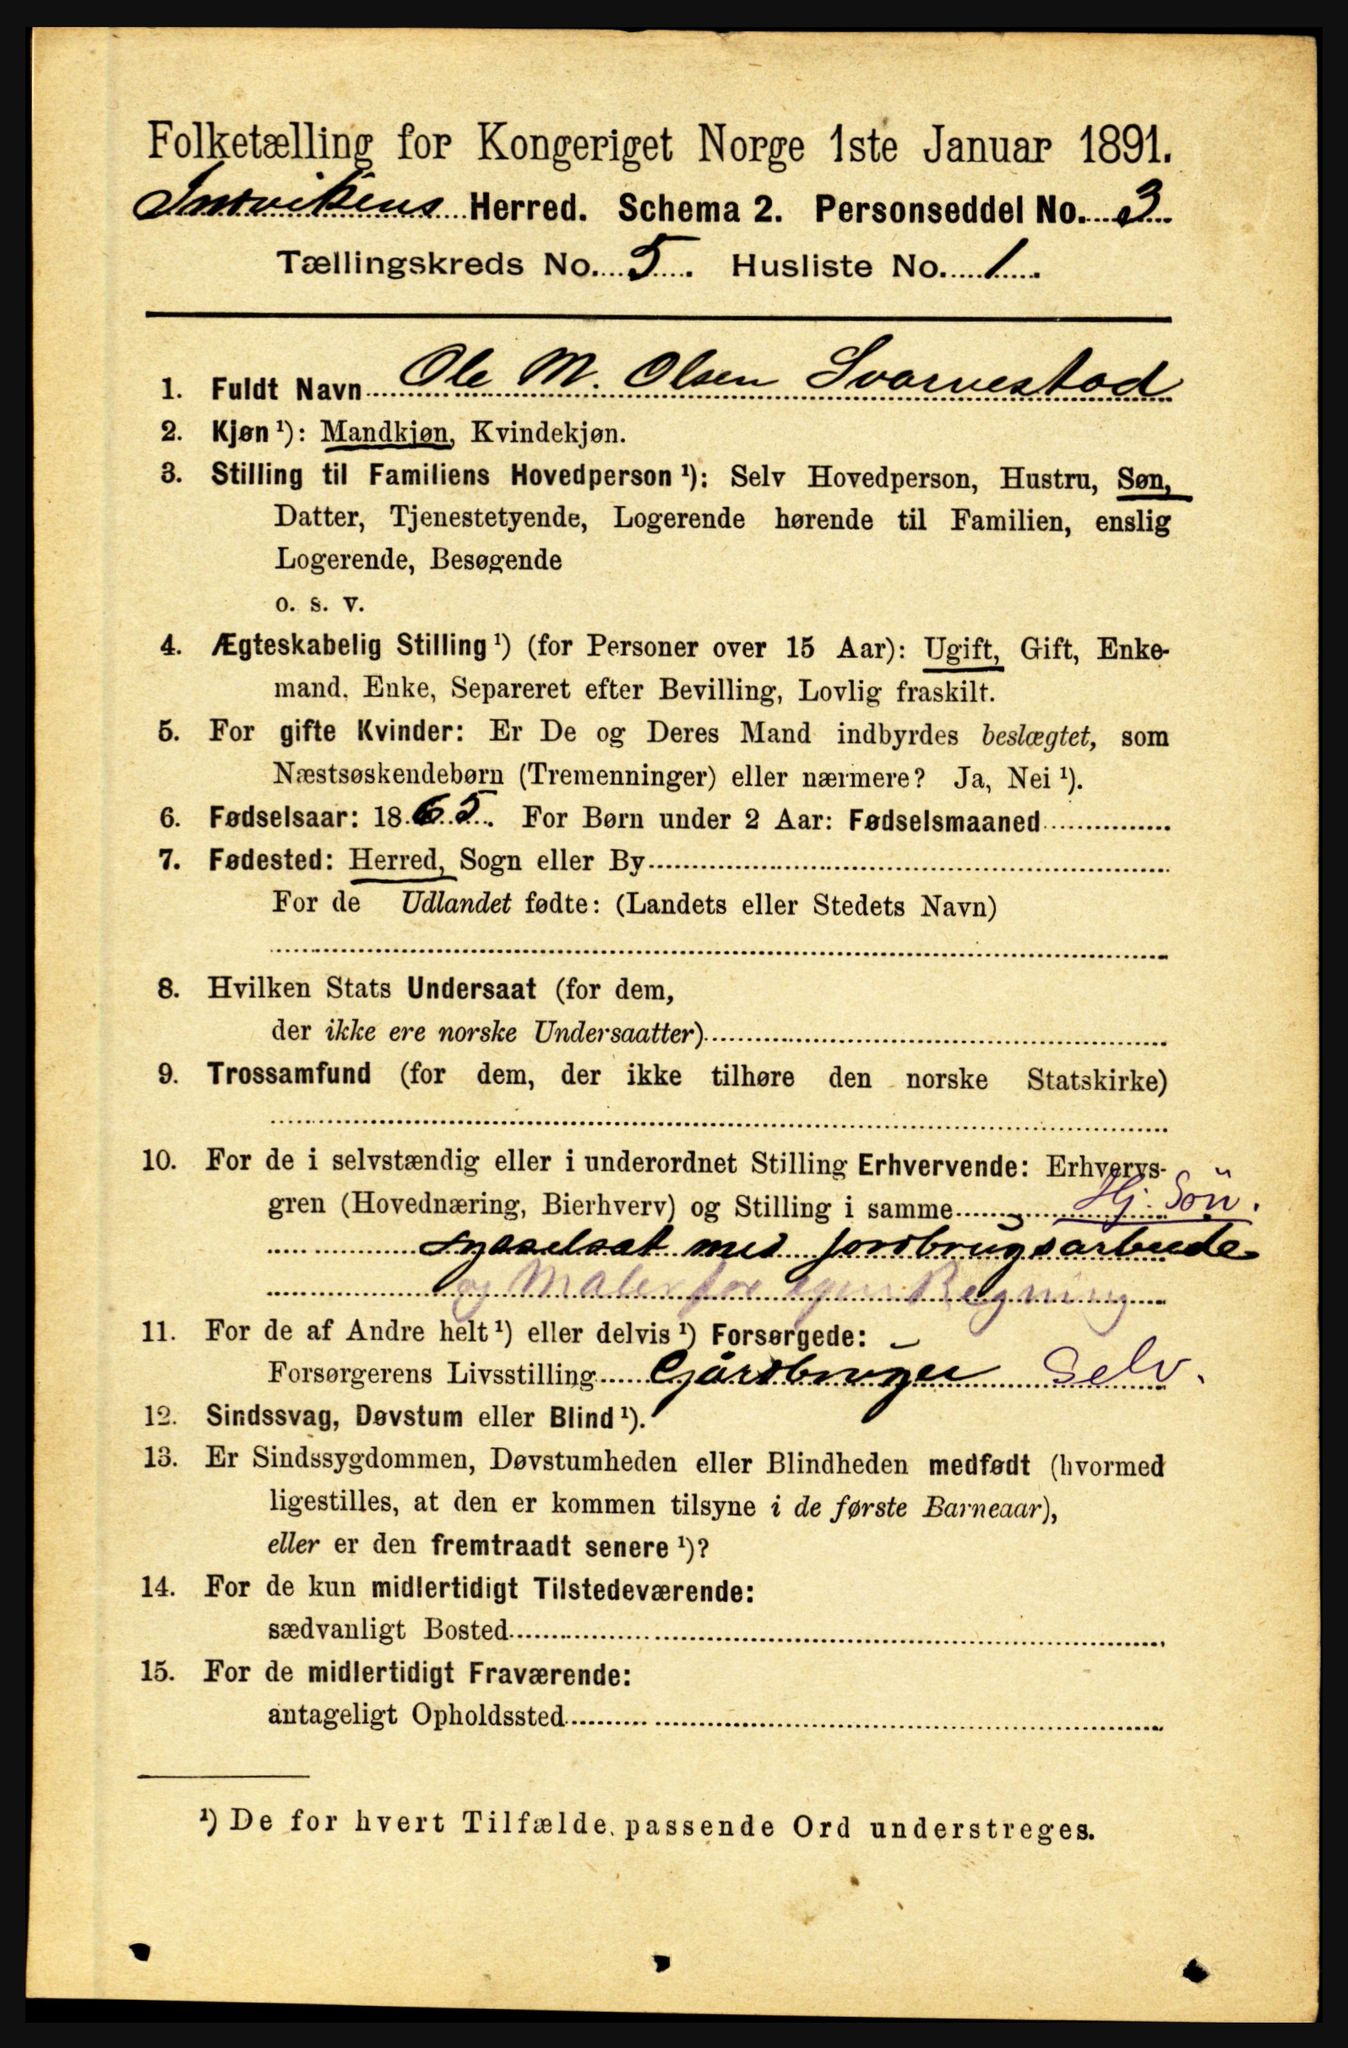 Folketælling for Kongeriget Norge 1ste Januar 1891.
Indvikens Herred. Schema 2. Personseddel No. 3
Tællingskreds No. 5. Husliste No. 1.
1. Fuldt Navn Ole M. Olsen Svarvestad
2. Kjøn ¹): Mandkjøn, Kvindekjøn.
3. Stilling til Familiens Hovedperson ¹): Selv Hovedperson, Hustru, Søn,
Datter, Tjenestetyende, Logerende hørende til Familien, enslig
Logerende, Besøgende
o. s. v.
4. Ægteskabelig Stilling ¹) (for Personer over 15 Aar): Ugift, Gift, Enke-
mand, Enke, Separeret efter Bevilling, Lovlig fraskilt.
5. For gifte Kvinder: Er De og Deres Mand indbyrdes beslægtet, som
Næstsøskendebørn (Tremenninger) eller nærmere? Ja, Nei ¹).
6. Fødselsaar: 1865. For Børn under 2 Aar: Fødselsmaaned
7. Fødested: Herred, Sogn eller By
For de Udlandet fødte: (Landets eller Stedets Navn)
8. Hvilken Stats Undersaat (for dem,
der ikke ere norske Undersaatter)
9. Trossamfund (for dem, der ikke tilhøre den norske Statskirke)
10. For de i selvstændig eller i underordnet Stilling Erhvervende: Erhvervs-
gren (Hovednæring, Bierhverv) og Stilling i samme Hj. Søn.
sysselsat med jordbrugsarbeide
og Maler for egen Regning
11. For de af Andre helt ¹) eller delvis ¹) Forsørgede:
Forsørgerens Livsstilling Gårdbruger Selv.
12. Sindssvag, Døvstum eller Blind ¹).
13. Er Sindssygdommen, Døvstumheden eller Blindheden medfødt (hvormed
ligestilles, at den er kommen tilsyne i de første Barneaar),
eller er den fremtraadt senere ¹)?
14. For de kun midlertidigt Tilstedeværende:
sædvanligt Bosted
15. For de midlertidigt Fraværende:
antageligt Opholdssted
¹) De for hvert Tilfælde passende Ord understreges.